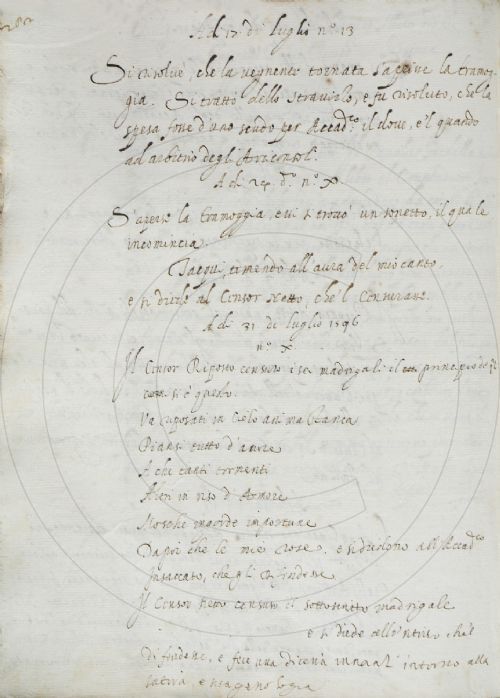 Ad 17 di Luglio n.º 13
Si risolvé, che la vegnente tornata s'aprisse la tramog-
gia. Si trattò dello Stravizo, e fu risoluto, che la
spesa fosse d'uno scudo per Accad.co il dove, e 'l quando
ad arbitrio degli Arciconsol.
A di 24 d.º n.º X
S'aperse la tramoggia, e vi si trovò un sonetto, il quale
incomincia.
Tacqui, timendo all'aura del mio canto,
e si diede al Censor Netto, che 'l censurasse.
A di 31 di luglio 1596
n.º X
Il Censor Riposto censurò i sei madrigali il principio de q.li
è questo.
Va riposati in Cielo anima stanca
Piansi tutto d'amore
A che canti tormenti
Altri in riso d'Amore
Mosche ingorde importune
Dapoi che le mie rose. e si diedono all'Accad.co
Insaccato, che gli difendesse
Il Censor censurò il sottoscritto madrigale
e si diede all' ch'el
difendesse, e fece una diceria intorno alla